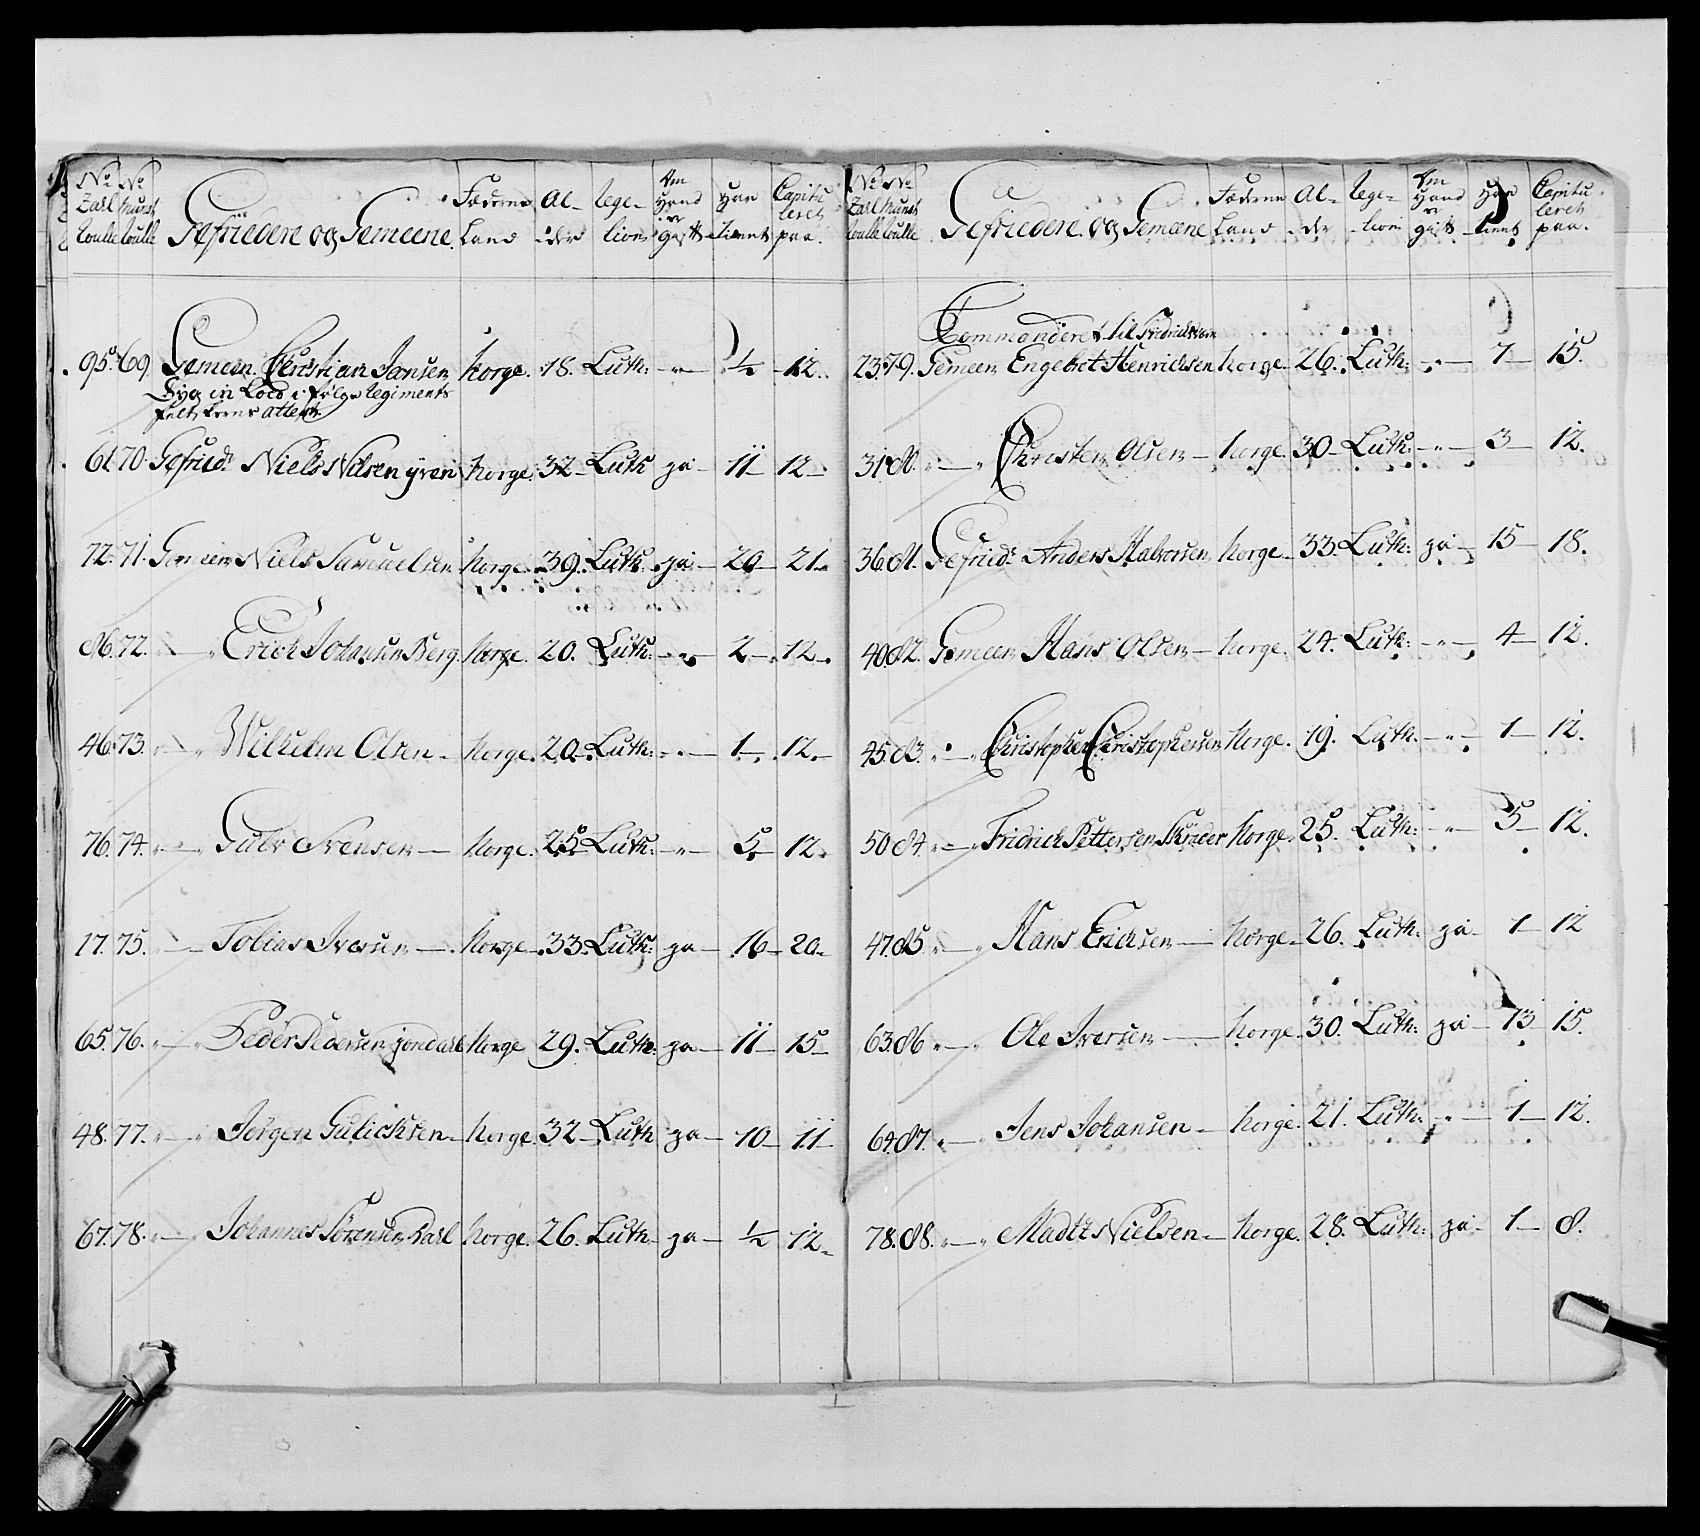 No No Fæderne Al- Rege- Om Har Capitu
Zarl Munst Hand er leret
Roulle Roulle Gefriedere og Gemeene Land der lion gift tient paa.
95. 69. Gemeen Christian Jansen Norge. 18. Luth: -"- ½ 12.
Syg in Loco i følge Regiments
Feltskerens attest
61. 70. Gefriedr Niels Nilsen yven Norge. 32 Luth ja 11 12.
72. 71. Gemeen Niels Samuelsen Norge. 39. Luth. ja 20 21.
86. 72. " — " Erich Johansen Berg Norge. 20. Luth: -"- 2 12.
46. 73. " — " Wilhelm Olsen Norge. 20. Luth: -"- 1 12.
76. 74. " — " Gulv Svensen Norge. 25. Luth: -"- 5 12.
17. 75. " — " Tobias Iversen Norge. 33. Luth: ja 16 20.
65. 76. " — " Peder Pedersen jondahl Norge 29. Luth: ja 11 15
48. 77. " — " Jørgen Gulichsen Norge. 32 Luth ja 10 11
67. 78. " — " Johannes Sørensen Karl Norge. 26. Luth ja ½ 12.
No No Fæderne Al- Rege- Om Har Capitu
Zarl Munst Hand er leret
Roulle Roulle Gefriedere og Gemeene Land der lion gift tient paa.
Commanderet til Fridrichstein
23. 79. Gemeen Engebret Henrichsen Norge. 26. Luth: -"- 7 15.
31. 80. " — " Christen Olsen Norge. 30 Luth: -"- 3 12.
36. 81. Gefriedr Anders Halvorsen Norge 33. Luth: ja 15 18.
40. 82. Gemeen Hans Olsen Norge. 24. Luth: -"- 4 12.
45. 83. " — " Christopher Christophersen Norge. 19. Luth: -"- 1 12.
50. 84. " — " Fridrich Pettersen Skræder Norge 25. Luth: -"- 5 12.
47. 85. " — " Hans Erichsen Norge 26. Luth: ja 1 12
63. 86 " — " Ole Iversen Norge 30. Luth: ja 13 15.
64. 87. " — " Jens Johansen Norge. 21. Luth: -"- 1 12.
78. 88. " — " Madtz Nielsen Norge. 28. Luth: ja 1 8.